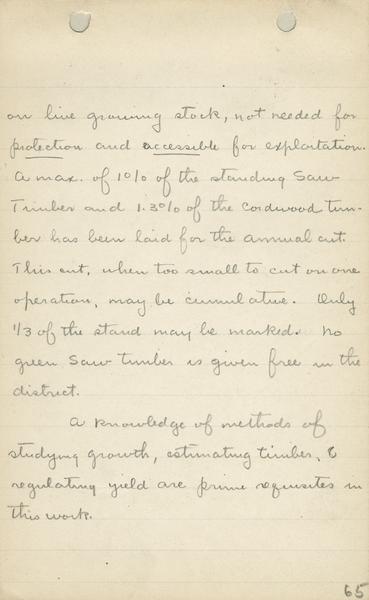 on live growing stock, not needed for
protection and accessible for exploitation.
A max. of 1% of the standing Saw
Timber and 1.3% of the Cordwood tim-
ber has been laid for the annual cut.
This cut, when too small to cut on one
operation, may be cumulative. Only
1/3 of the stand may be marked. No
green Saw timber is given free in the
district.
A knowledge of methods of
studying growth, estimating timber, &
regulating yield are prime requisites in
this work.
65